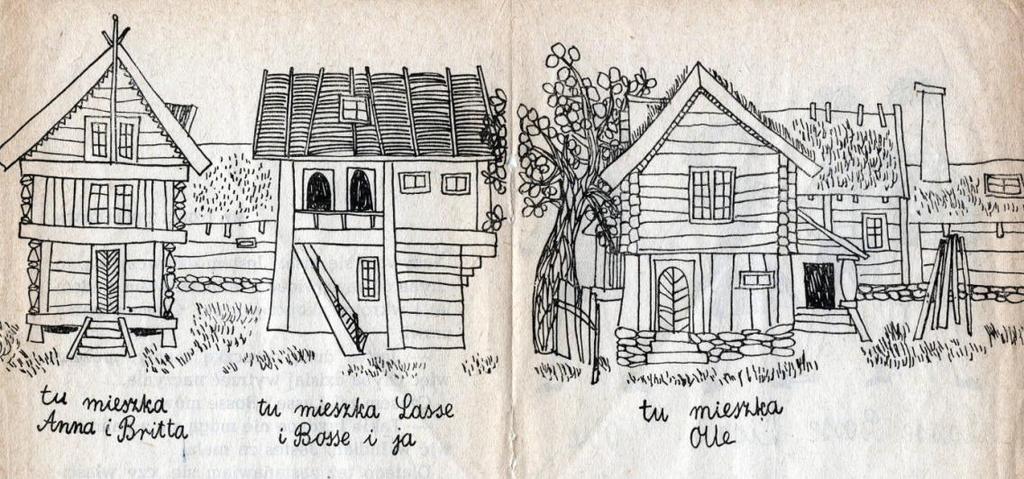 tu mieszka
Anna i Britta
tu mieszka Lasse
i Bosse i ja
tu mieszka
Olle